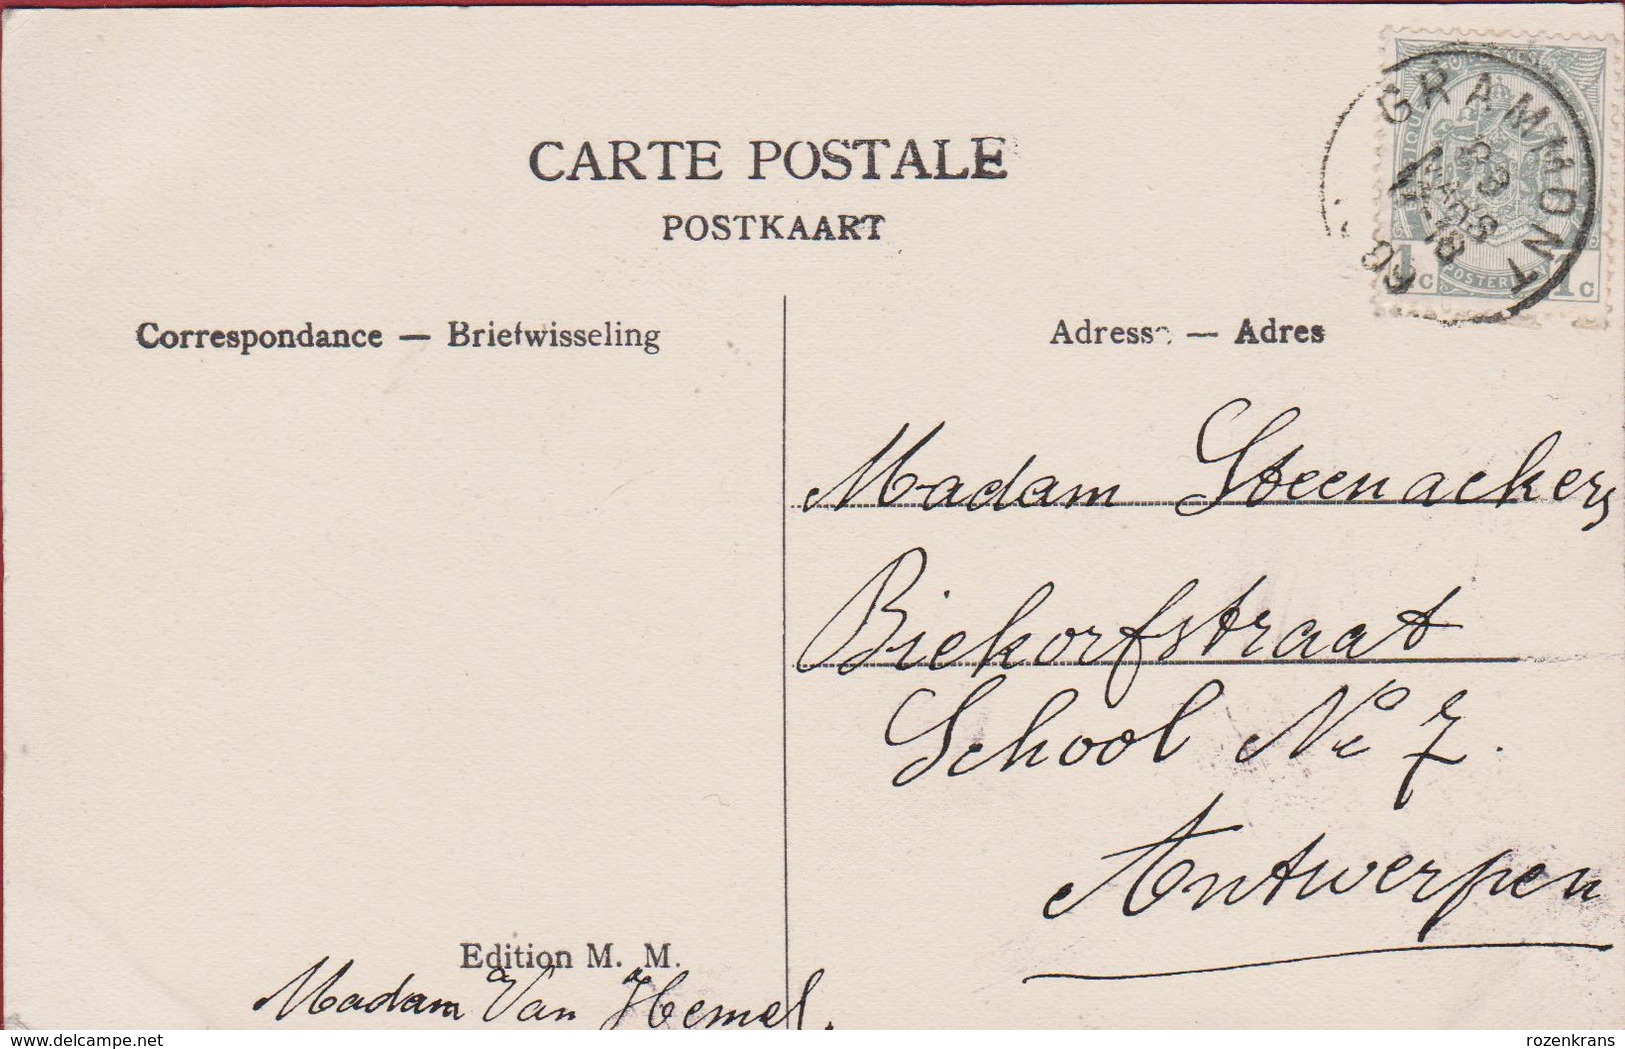 CARTE POSTALE
POSTKAART
Correspondance — Briefwisseling
Adresse — Adres
GRAMMONT
1c 1c
Madam Steenackers
Biekorfstraat
School No 7.
Antwerpen
Edition M. M.
Madam Van Hemel.
delcampe.net
rozenkrans